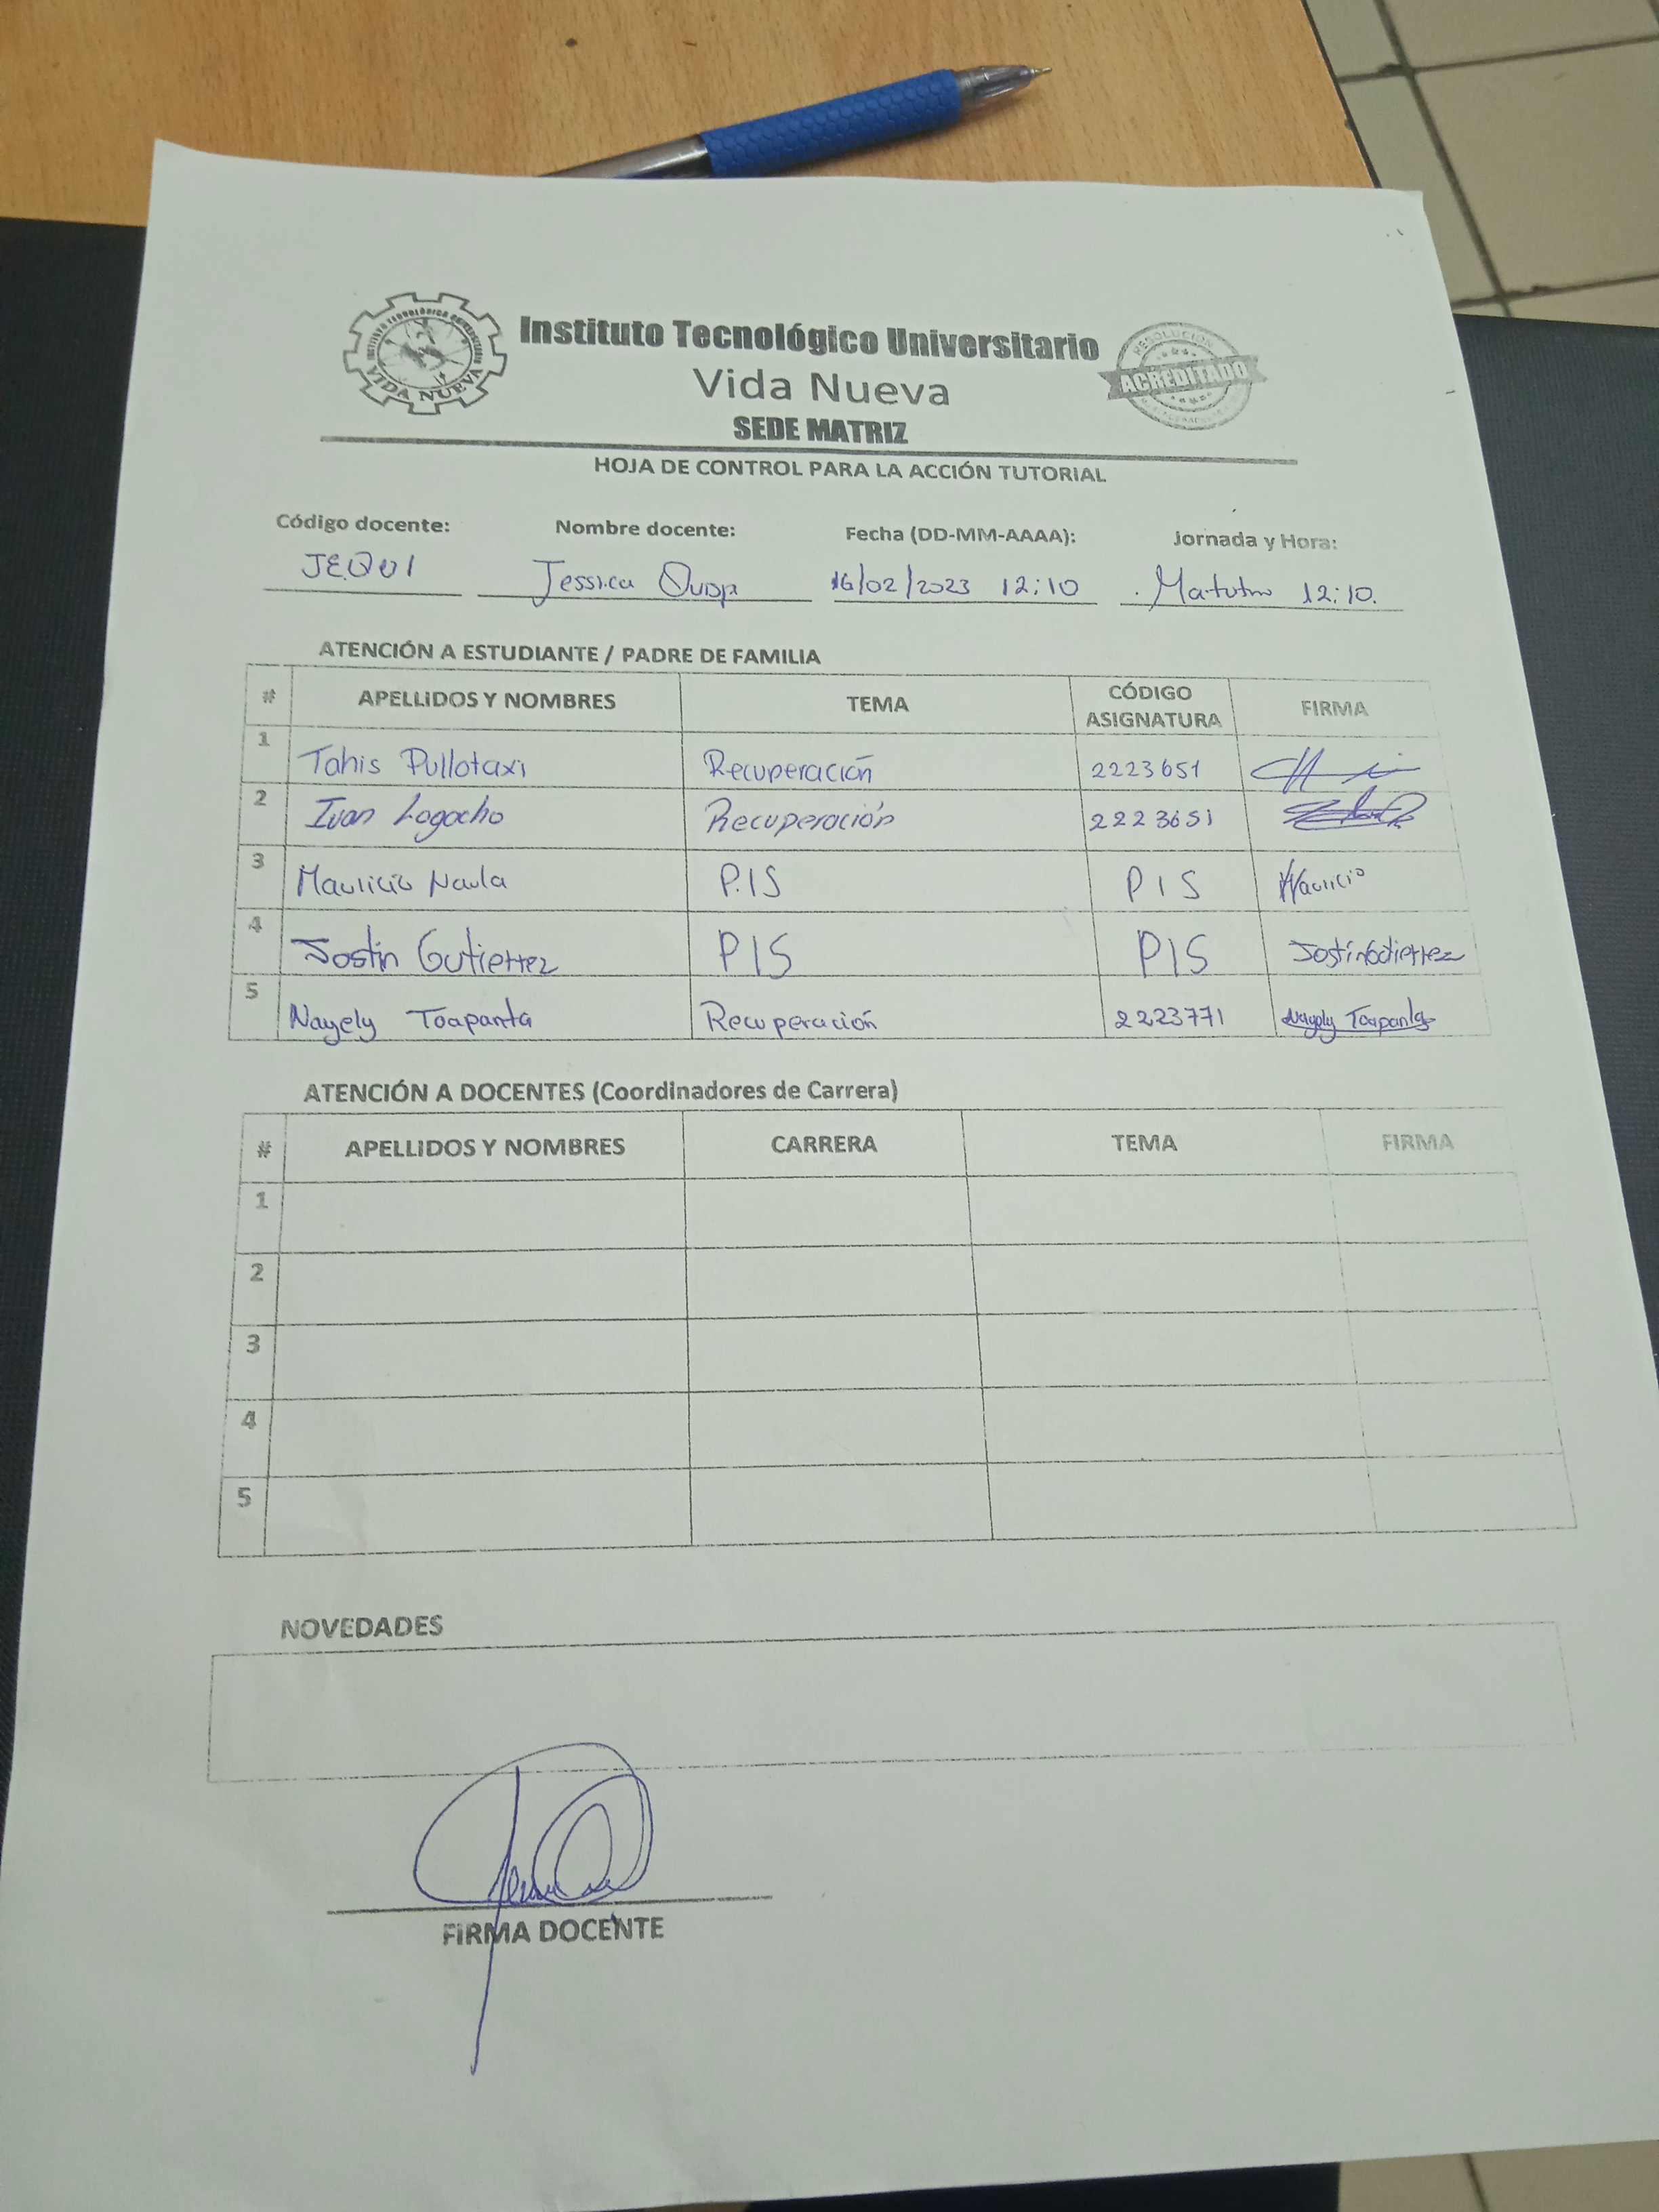 INSTITUTO TECNOLÓGICO UNIVERSITARIO
VIDA NUEVA
Instituto Tecnológico Universitario
Vida Nueva
SEDE MATRIZ
RESOLUCIÓN
ACREDITADO
HOJA DE CONTROL PARA LA ACCIÓN TUTORIAL
Código docente: Nombre docente: Fecha (DD-MM-AAAA): Jornada y Hora:
JEQUI Jessica 16/02/2023 12:10 12:10.
ATENCIÓN A ESTUDIANTE / PADRE DE FAMILIA
# APELLIDOS Y NOMBRES TEMA CÓDIGO ASIGNATURA FIRMA
1 Tahis Pullotaxi Recuperación 2223651
2 Ivan Logacho Recuperación 2223651
3 Mauricio Naula P.IS PIS Mauricio
4 Jostin Gutierrez PIS PIS Jostin Gutierrez
5 Nayely Toapanta Recuperación 2223771 Nayely Toapanta
ATENCIÓN A DOCENTES (Coordinadores de Carrera)
# APELLIDOS Y NOMBRES CARRERA TEMA FIRMA
1
2
3
4
5
NOVEDADES
FIRMA DOCENTE